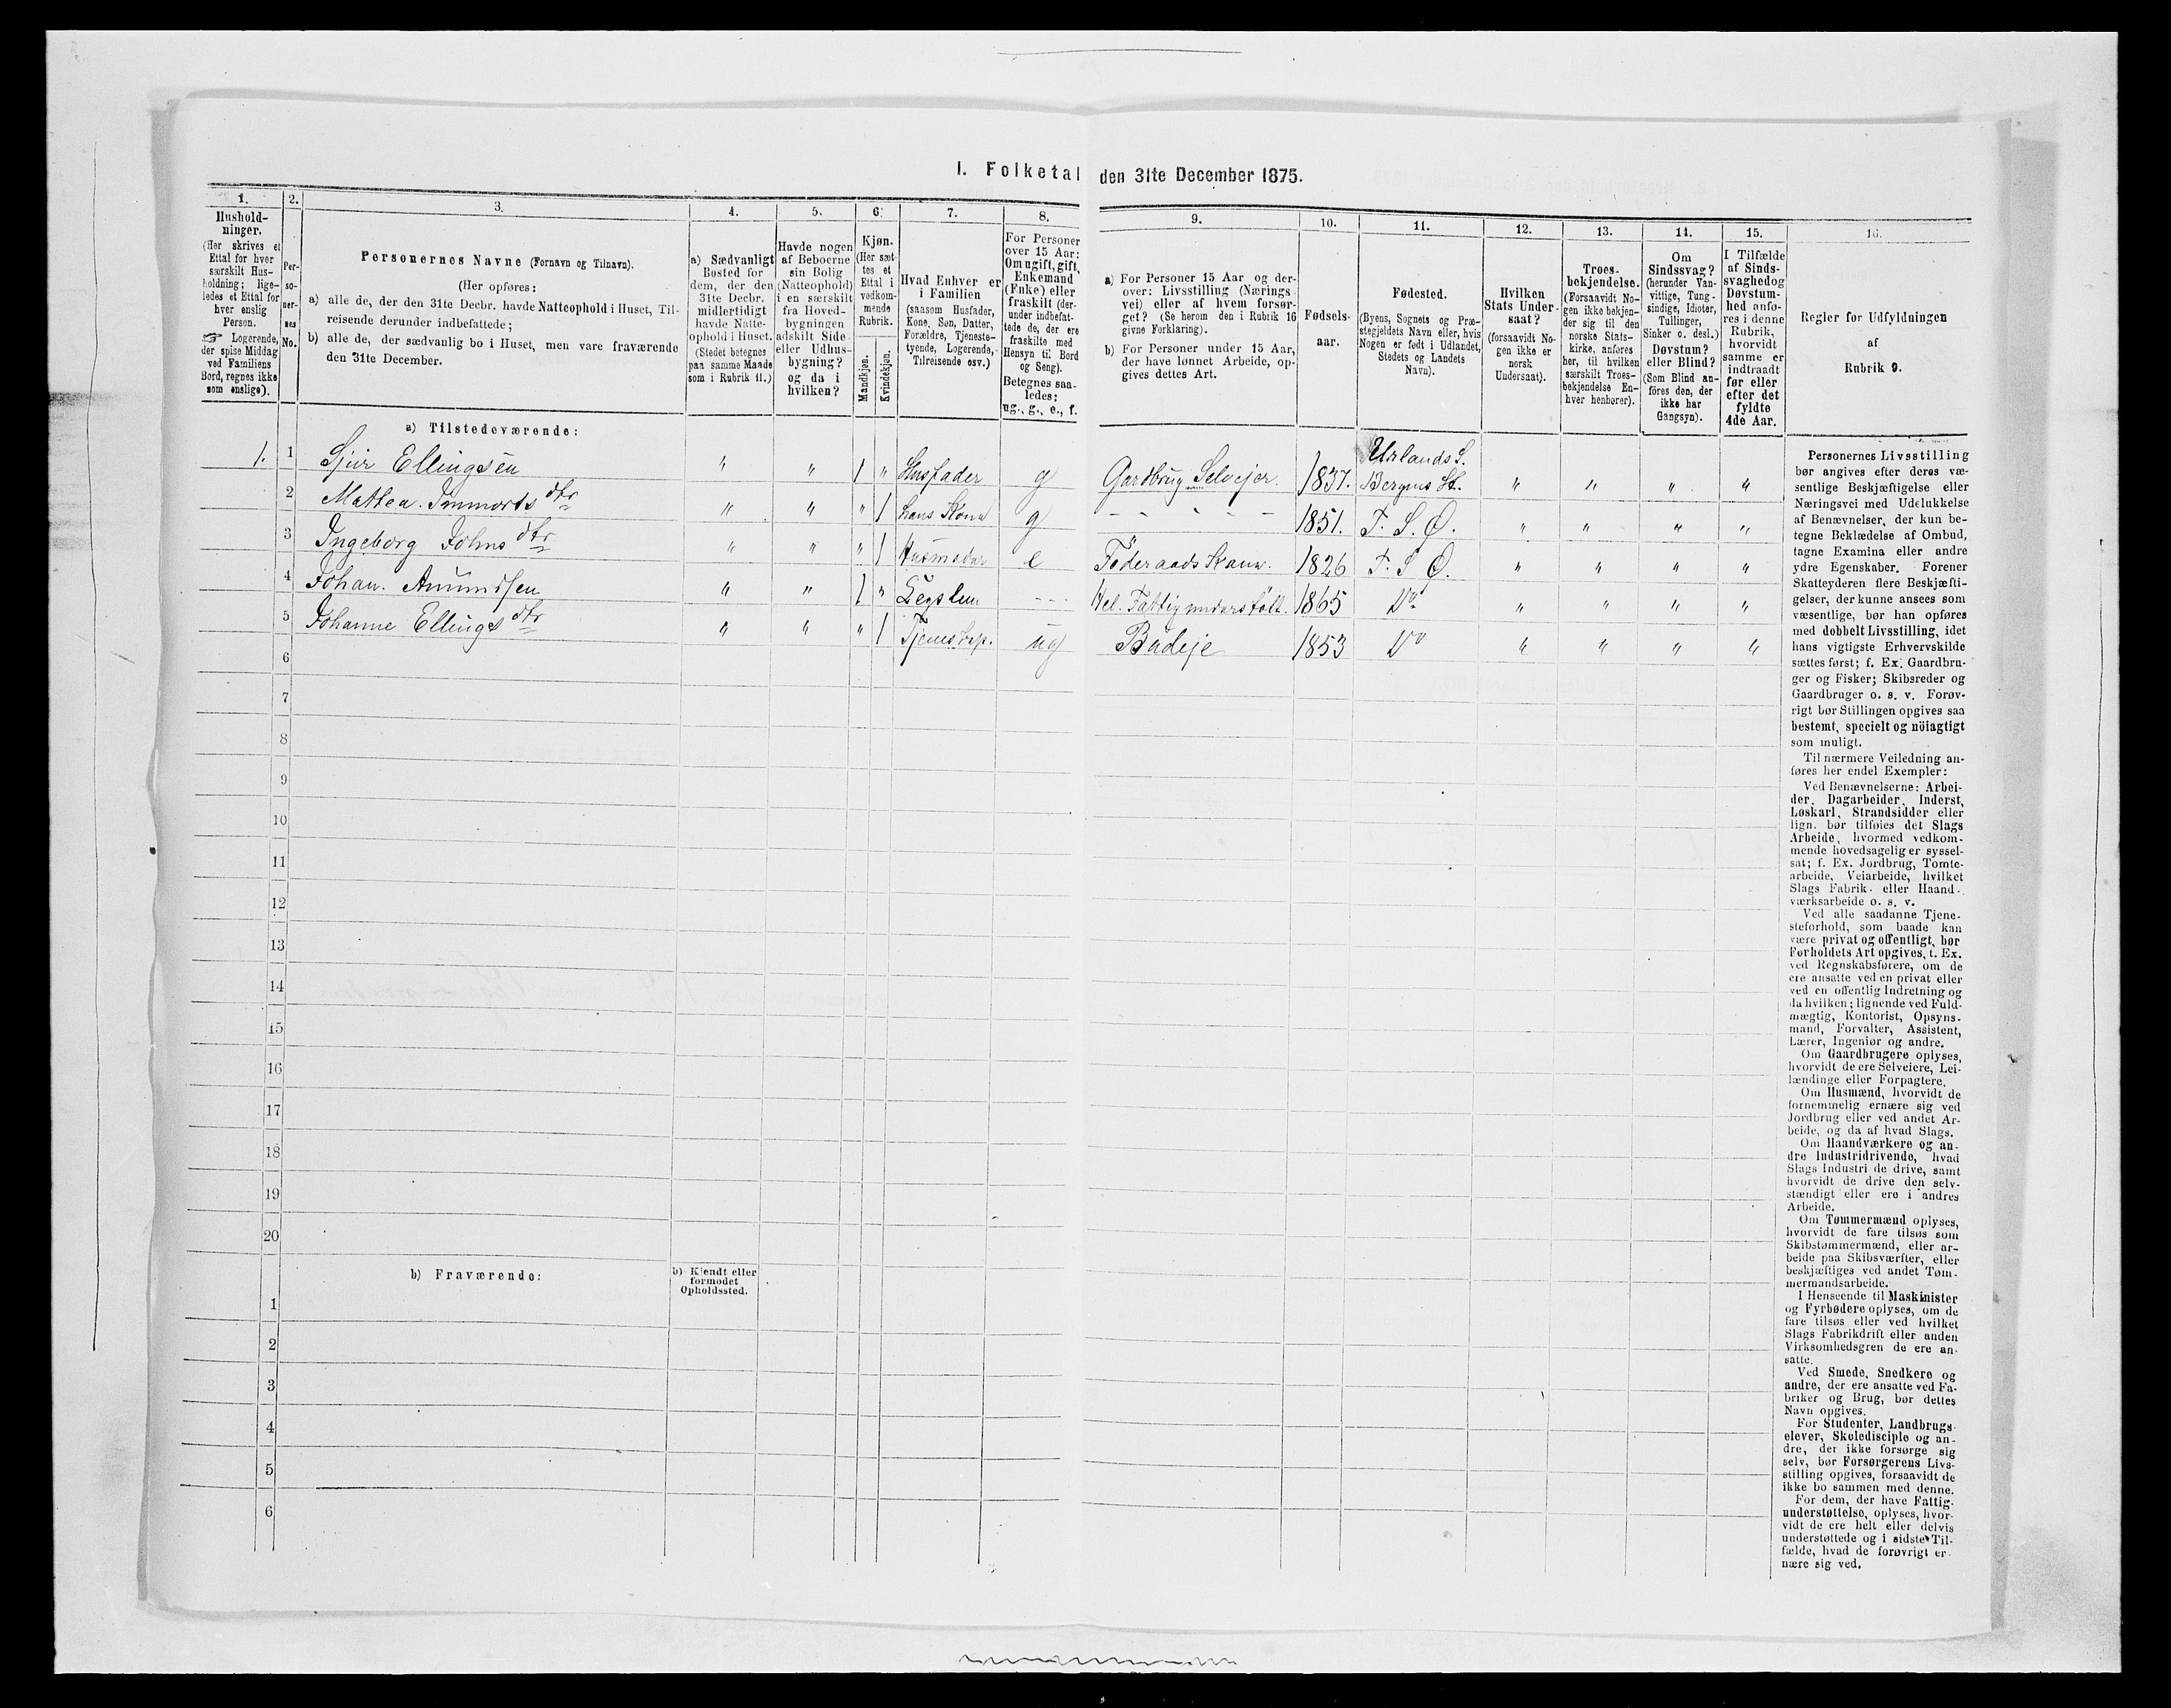 I. Folketal den 31te December 1875.
1.
Hushold-
ninger.
(Her skrives et
Ettal for hver
særskilt Hus-
holdning; lige-
ledes et Ettal for
hver enslig
Person.
☞ Logerende,
der spise Middag
ved Familiens
Bord, regnes ikke
som enslige).
2.
Per-
so-
ner-
nes
No.
3.
Personernes Navne (Fornavn og Tilnavn).
(Her opføres:
a) alle de, der den 31te Decbr. havde Natteophold i Huset, Til-
reisende derunder indbefattede;
b) alle de, der sædvanlig bo i Huset, men vare fraværende
den 31te December.
4.
a) Sædvanligt
Bosted for
dem, der den
31te Decbr.
midlertidigt
havde Natte-
ophold i Huset.
(Stedet betegnes
paa samme Maade
som i Rubrik 11.)
5.
Havde nogen
af Beboerne
sin Bolig
(Natteophold)
i en særskilt
fra Hoved-
bygningen
adskilt Side-
eller Udhus-
bygning?
og da i
hvilken?
6.
Kjøn.
(Her sæt-
tes et
Ettal i
vedkom-
mende
Rubrik.
Mandkjøn.
Kvindekjøn.
7.
Hvad Enhver er
i Familien
(saasom Husfader,
Kone, Søn, Datter,
Forældre, Tjeneste-
tyende, Logerende,
Tilreisende osv.)
8.
For Personer
over 15 Aar:
Om ugift, gift,
Enkemand
(Enke) eller
fraskilt (der-
under indbefat-
tede de, der ere
fraskilte med
Hensyn til Bord
og Seng).
Betegnes saa-
ledes:
ug., g., e., f.
9.
a) For Personer 15 Aar og der-
over: Livsstilling (Nærings-
vei) eller af hvem forsør-
get? (Se herom den i Rubrik 16
givne Forklaring).
b) For Personer under 15 Aar,
der have lønnet Arbeide, op-
gives dettes Art.
10.
Fødsels-
aar.
11.
Fødested.
(Byens, Sognets og Præ-
stegjeldets Navn eller, hvis
Nogen er født i Udlandet,
Stedets og Landets
Navn).
12.
Hvilken
Stats Under-
saat?
(forsaavidt No-
gen ikke er
norsk
Undersaat).
13.
Troes-
bekjendelse.
(Forsaavidt No-
gen ikke bekjen-
der sig til den
norske Stats-
kirke, anføres
her, til hvilken
særskilt Troes-
bekjendelse En-
hver henhører).
14.
Om
Sindssvag?
(herunder Van-
vittige, Tung-
sindige, Idioter,
Tullinger,
Sinker o. desl.)
Døvstum?
eller Blind?
(Som Blind an-
føres den, der
ikke har
Gangsyn).
15.
I Tilfælde
af Sinds-
svaghed og
Døvstum-
hed anfø-
res i denne
Rubrik,
hvorvidt
samme er
indtraadt
før eller
efter det
fyldte
4de Aar.
16.
Regler for Udfyldningen
af
Rubrik 9.
a) Tilstedeværende:
1. 1 Sjur Ellingsen " " 1 " Husfader g Gardbrug Selvejer 1837. Urlands S. Bergens St. " " " "
2 Mathea Immorts dtr " " " 1 hans Kone g - - - - - 1851. T. S. Ø. " " " "
3 Ingeborg Johns dtr " " " 1 Husmoder e Føderaads Kone. 1826 T. S. Ø. " " " "
4 Johan. Amundsen " " 1 " Legslem - - - Hel. Fattigunderstött. 1865 Do " " " "
5 Johanne Ellings dtr " " " 1 Tjenestep. ug Budeje 1853 Do " " " "
6
7
8
9
10
11
12
13
14
15
16
17
18
19
20
b) Fraværende:
b) Kjendt eller
formodet
Opholdssted.
1
2
3
4
5
6
Personernes Livsstilling
bør angives efter deres væ-
sentlige Beskjæftigelse eller
Næringsvei med Udelukkelse
af Benævnelser, der kun be-
tegne Beklædelse af Ombud,
tagne Examina eller andre
ydre Egenskaber. Forener
Skatteyderen flere Beskjæfti-
gelser, der kunne ansees som
væsentlige, bør han opføres
med dobbelt Livsstilling, idet
hans vigtigste Erhvervskilde
sættes først; f. Ex. Gaardbru-
ger og Fisker; Skibsreder og
Gaardbruger o. s. v. Forøv-
rigt bør Stillingen opgives saa
bestemt, specielt og nöiagtigt
som muligt.
Til nærmere Veiledning an-
føres her endel Exempler:
Ved Benævnelserne: Arbei-
der, Dagarbeider, Inderst,
Løskarl, Strandsidder eller
lign. bør tilføies det Slags
Arbeide, hvormed vedkom-
mende hovedsagelig er syssel-
sat; f. Ex. Jordbrug, Tomte-
arbeide, Veiarbeide, hvilket
Slags Fabrik- eller Haand-
værksarbeide o. s. v.
Ved alle saadanne Tjene-
steforhold, som baade kan
være privat og offentligt, bør
Forholdets Art opgives, t. Ex.
ved Regnskabsførere, om de
ere ansatte ved en privat eller
ved en offentlig Indretning og
da hvilken; lignende ved Fuld-
mægtig, Kontorist, Opsyns-
mand, Forvalter, Assistent,
Lærer, Ingeniør og andre.
Om Gaardbrugere oplyses,
hvorvidt de ere Selveiere, Lei-
lændinge eller Forpagtere.
Om Husmænd, hvorvidt de
fornemmelig ernære sig ved
Jordbrug eller ved andet Ar-
beide, og da af hvad Slags.
Om Haandværkere og an-
dre Industridrivende, hvad
Slags Industri de drive, samt
hvorvidt de drive den selv-
stændigt eller ere i andres
Arbeide.
Om Tømmermænd oplyses,
hvorvidt de fare tilsøs som
Skibstømmermænd, eller ar-
beide paa Skibsværfter, eller
beskjæftiges ved andet Tøm-
mermandsarbeide.
I Henseende til Maskinister
og Fyrbødere oplyses, om de
fare tilsøs eller ved hvilket
Slags Fabrikdrift eller anden
Virksomhedsgren de ere an-
satte.
Ved Smede, Snedkere og
andre, der ere ansatte ved Fa-
briker og Brug, bør dettes
Navn opgives.
For Studenter, Landbrugs-
elever, Skoledisciple og an-
dre, der ikke forsørge sig
selv, bør Forsørgerens Livs-
stilling opgives, forsaavidt de
ikke bo sammen med denne.
For dem, der have Fattig-
understøttelse, oplyses, hvor-
vidt de ere helt eller delvis
understøttede og i sidste Til-
fælde, hvad de forøvrigt er-
nære sig ved.